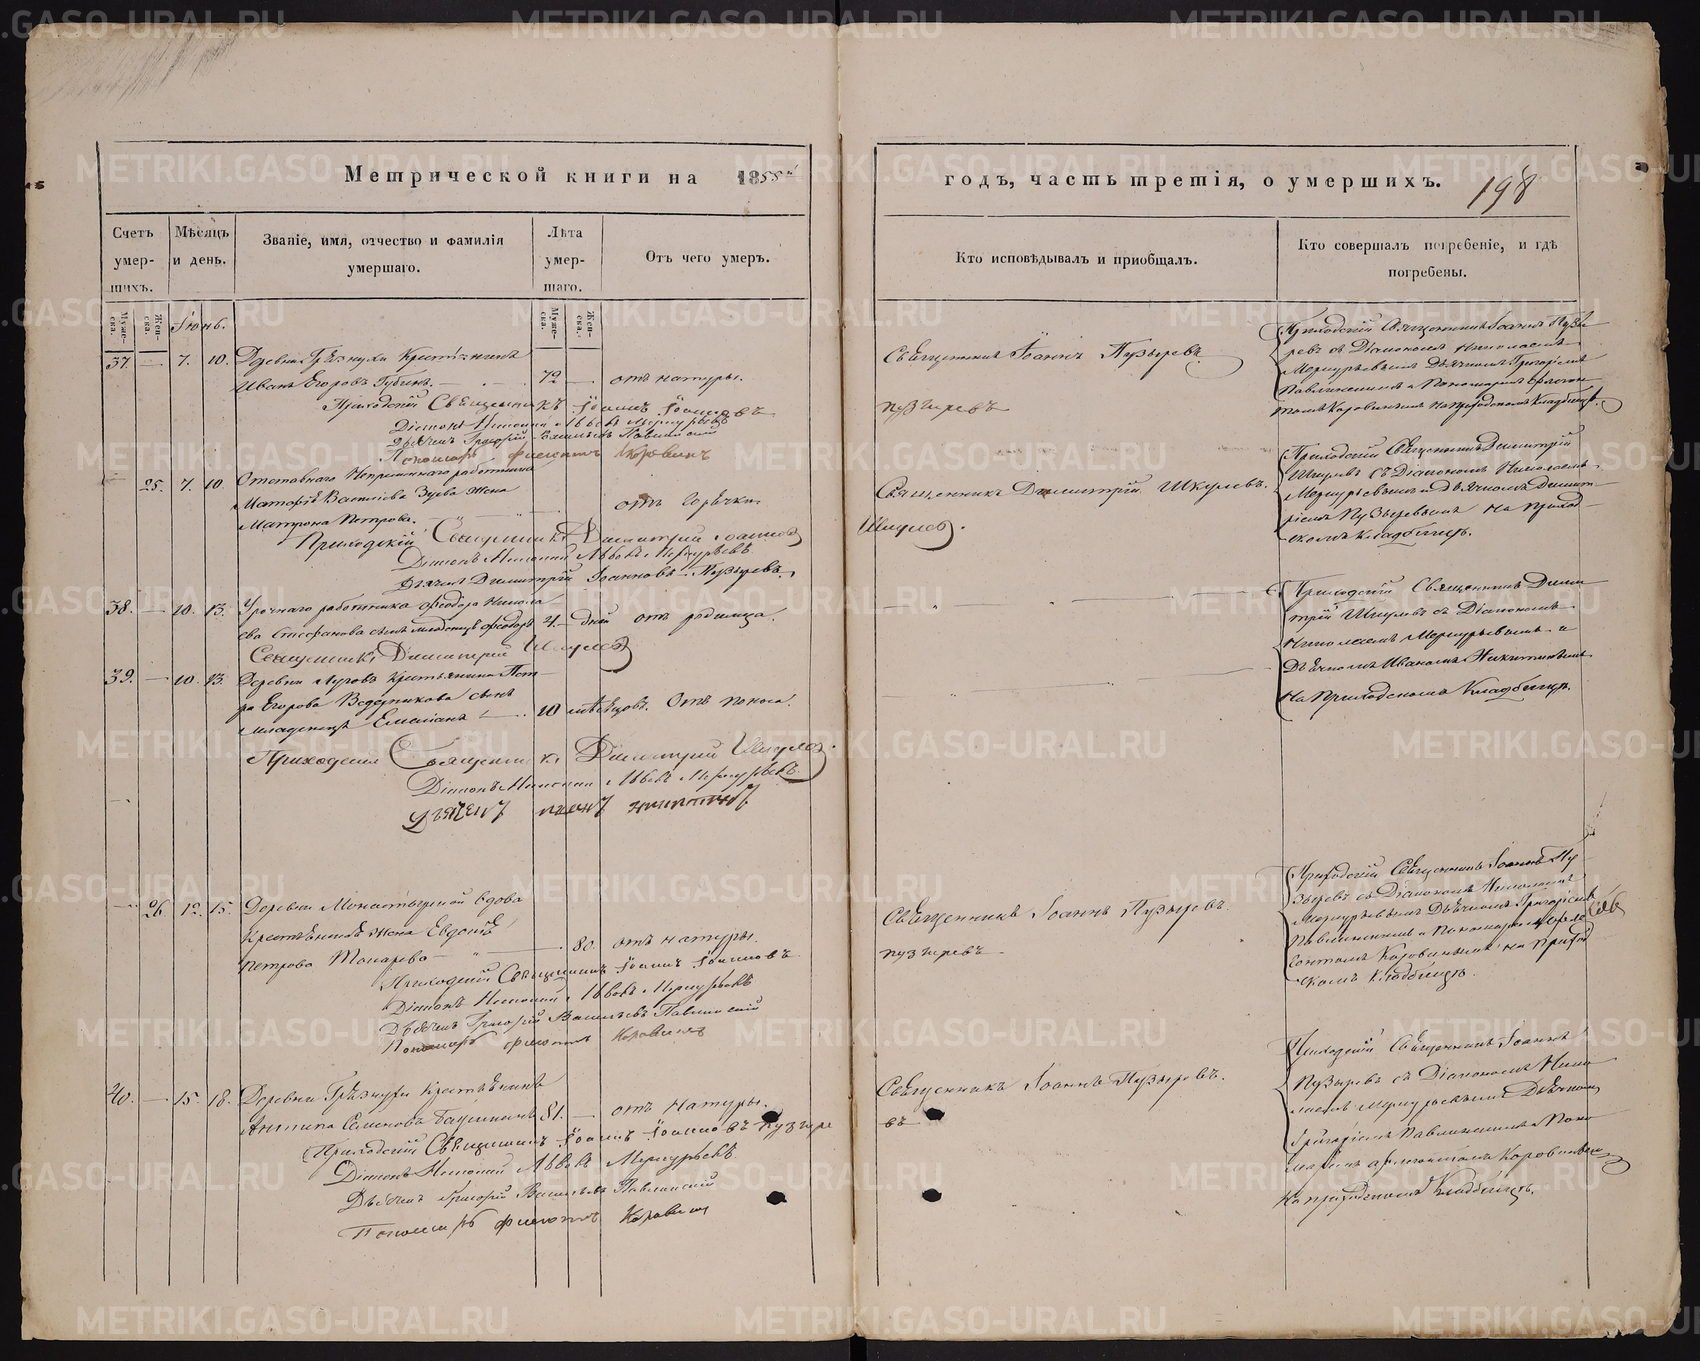 Метрической книги на 1855й
годъ, часть третія, о умершихъ.
198
Счетъ умер-шихъ.
Мѣсяцъ и день.
Званіе, имя, отчество и фамилія умершаго.
Лѣта умер-шаго.
Отъ чего умеръ.
Кто исповѣдывалъ и приобщалъ.
Кто совершалъ погребеніе, и гдѣ погребены.
Муже-ска.
Жен-ска.
Іюнь.
Муже-ска.
Жен-ска.
37. — 7. 10. Крестьянинъ
Иванъ Егоровъ Губинъ. — 72 — отъ натуры.
Приходскій Священникъ Іоаннъ Іоанновъ
Пузыревъ
Діаконъ Николай Львовъ Меркурьевъ
Дьячекъ Григорій Васильевъ Павлинскій
Пономарь Филоѳей Коровинъ
Священникъ Іоаннъ Пузыревъ.
Приходскій Священникъ Іоаннъ Пузы
ревъ съ Діакономъ Николаемъ
Меркурьевымъ Дьячкомъ Григоріемъ
Павлинскимъ и Пономаремъ
Коровинымъ на приходскомъ кладбищѣ.
25. 7. 10. Отставнаго Непремѣннаго работника
Василіева Зуева жена
Матрона Петрова. — отъ горячки.
Приходскій Священникъ Димитрій Іоанновъ
Шкулевъ.
Діаконъ Николай Львовъ Меркурьевъ
Дьячекъ Димитрій Іоанновъ Пузыревъ.
Священникъ Димитрій Шкулевъ.
Приходскій Священникъ Димитрій
Шкулевъ съ Діакономъ Николаемъ
Меркурьевымъ и дьячкомъ Димит-
ріемъ Пузыревымъ на приход-
скомъ кладбищѣ.
38. — 10. 13. Урочнаго работника Ѳеодора Никола
ева Стефанова сынъ младенецъ Ѳеодоръ 4. — дней отъ родимца.
Священникъ Димитрій Шкулевъ
Приходскій Священникъ Дими
трій Шкулевъ съ Діакономъ
Николаемъ Меркурьевымъ и
Дьячкомъ Иваномъ Никитинымъ
на Приходскомъ Кладбищѣ.
39. — 10. 13. Деревни крестьянина Пет-
ра Егорова Ведерникова сынъ
младенецъ Емеліанъ — 10 мѣсяцовъ. Отъ поноса.
Приходскій Священникъ Димитрій Шкулевъ.
Діаконъ Николай Львовъ Меркурьевъ
Дьячекъ Иванъ Никитинъ
— 26. 12. 15. Деревни Монастырской вдова
Крестьянская жена Евдокія
Петрова Токарева — 80. отъ натуры.
Приходскій Священникъ Іоаннъ Іоанновъ
Пузыревъ
Діаконъ Николай Львовъ Меркурьевъ
Дьячекъ Григорій Васильевъ Павлинскій
Пономарь Коровинъ
Священникъ Іоаннъ Пузыревъ.
Приходскій Священникъ Іоаннъ Пу-
зыревъ съ Діакономъ Николаемъ
Меркурьевымъ Дьячкомъ Григоріемъ
Павлинскимъ и Пономаремъ
Коровинымъ на приход
скомъ кладбищѣ.
40. — 15. 18. Деревни Крестьянинъ
Семеновъ 81. — отъ натуры.
Приходскій Священникъ Іоаннъ Іоанновъ Пузыре
въ
Діаконъ Николай Львовъ Меркурьевъ
Дьячекъ Григорій Васильевъ Павлинскій
Пономарь Коровинъ
Священникъ Іоаннъ Пузыревъ.
Приходскій Священникъ Іоаннъ
Пузыревъ съ Діакономъ Нико
лаемъ Меркурьевымъ Дьячкомъ
Григоріемъ Павлинскимъ Поно
маремъ Коровинымъ
на приходскомъ кладбищѣ.
METRIKI.GASO-URAL.RU